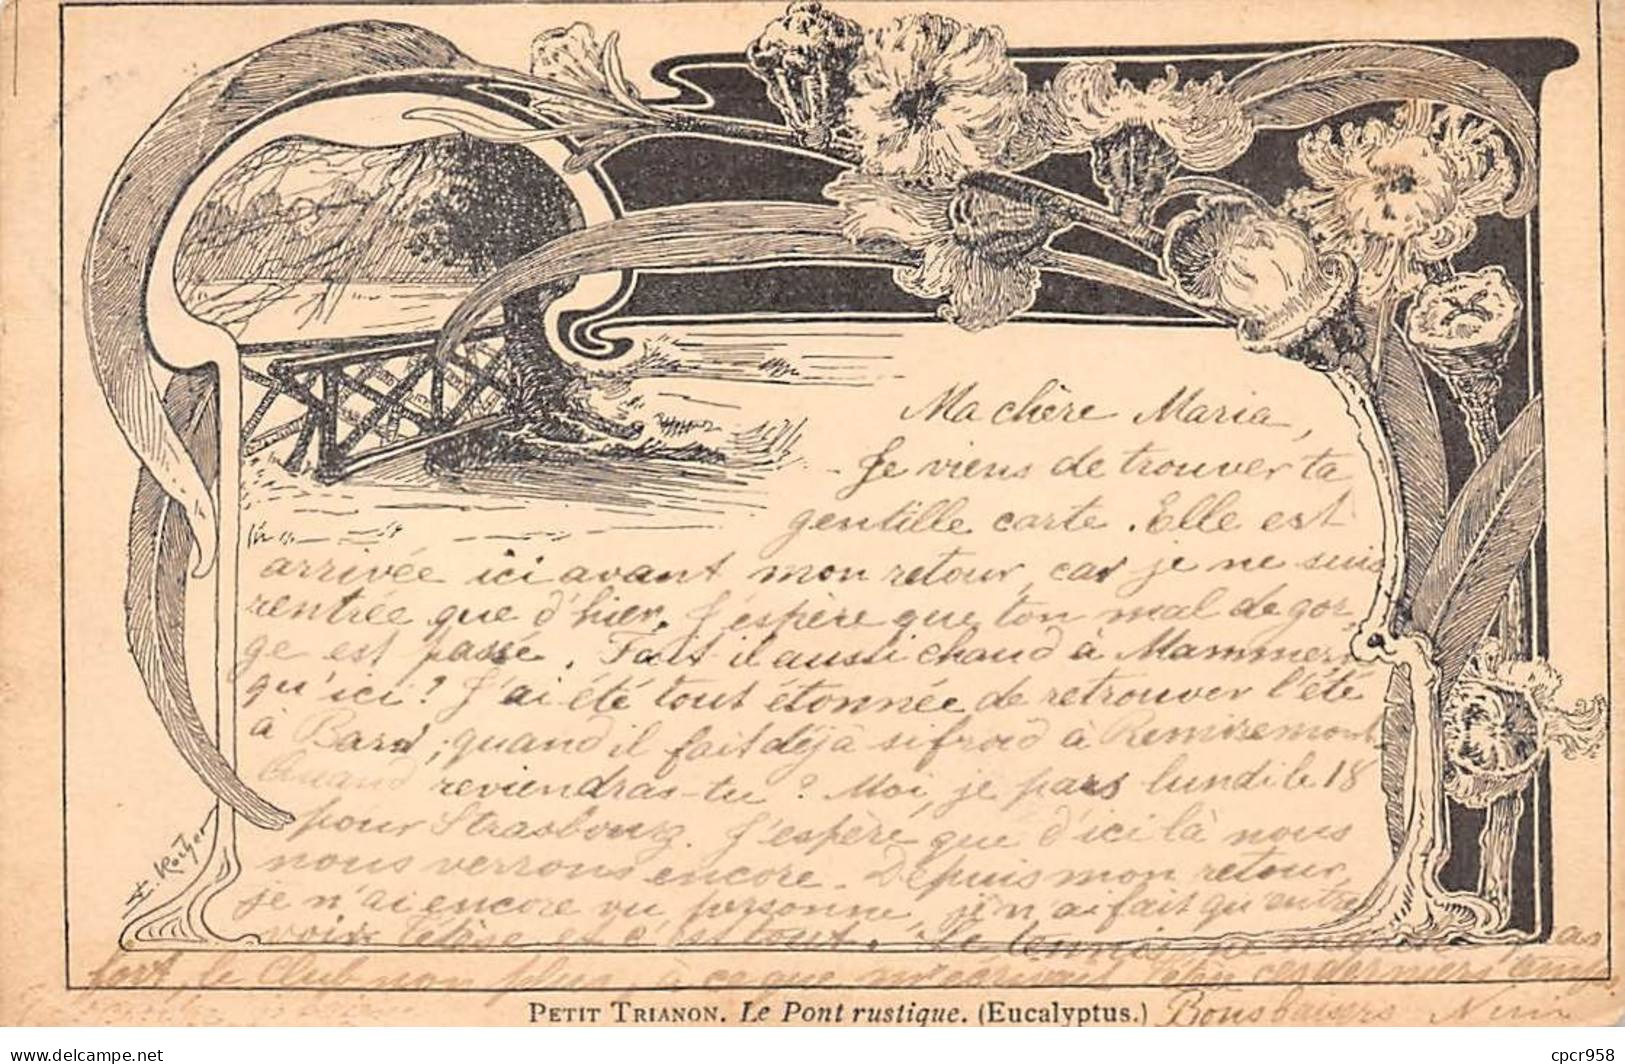 Ma chère Maria,
Je viens de trouver ta
gentille carte. Elle est
arrivée ici avant mon retour, car je ne suis
rentrée que d'hier. J'espère que ton mal de gor-
ge est passé. Fait il aussi chaud à Mammern
qu'ici? J'ai été tout étonnée de retrouver l'été
à ; quand il fait déjà si froid à Remiremont.
Quand reviendras-tu? Moi, je pars lundi le 18
pour Strasbourg. J'espère que d'ici là nous
nous verrons encore. Depuis mon retour,
je n'ai encore vu personne, je n'ai fait qu'entre
voir et c'est tout. Le tennis ne marche pas
fort, le Club non plus, à ce que m'écrivait ces derniers temps.
Bons baisers
E. Rocher
PETIT TRIANON. Le Pont rustique. (Eucalyptus.)
delcampe.net
cpcr958